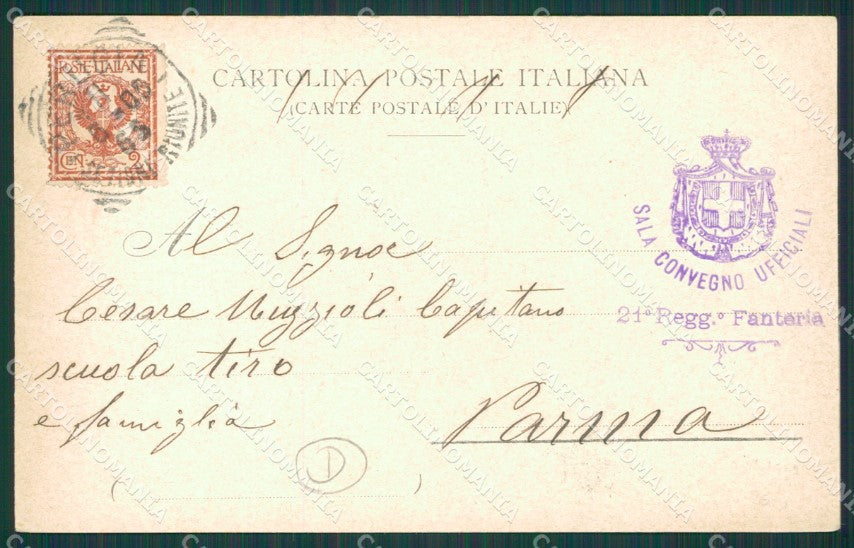 POSTE ITALIANE
CARTOLINA POSTALE ITALIANA
(CARTE POSTALE D'ITALIE)
SALA CONVEGNO UFFICIALI
21º Regg.º Fanteria
Al Signor
Cesare Muzzioli Capitano
scuola tiro
e famiglia
Parma
D
CARTOLINOMANIA